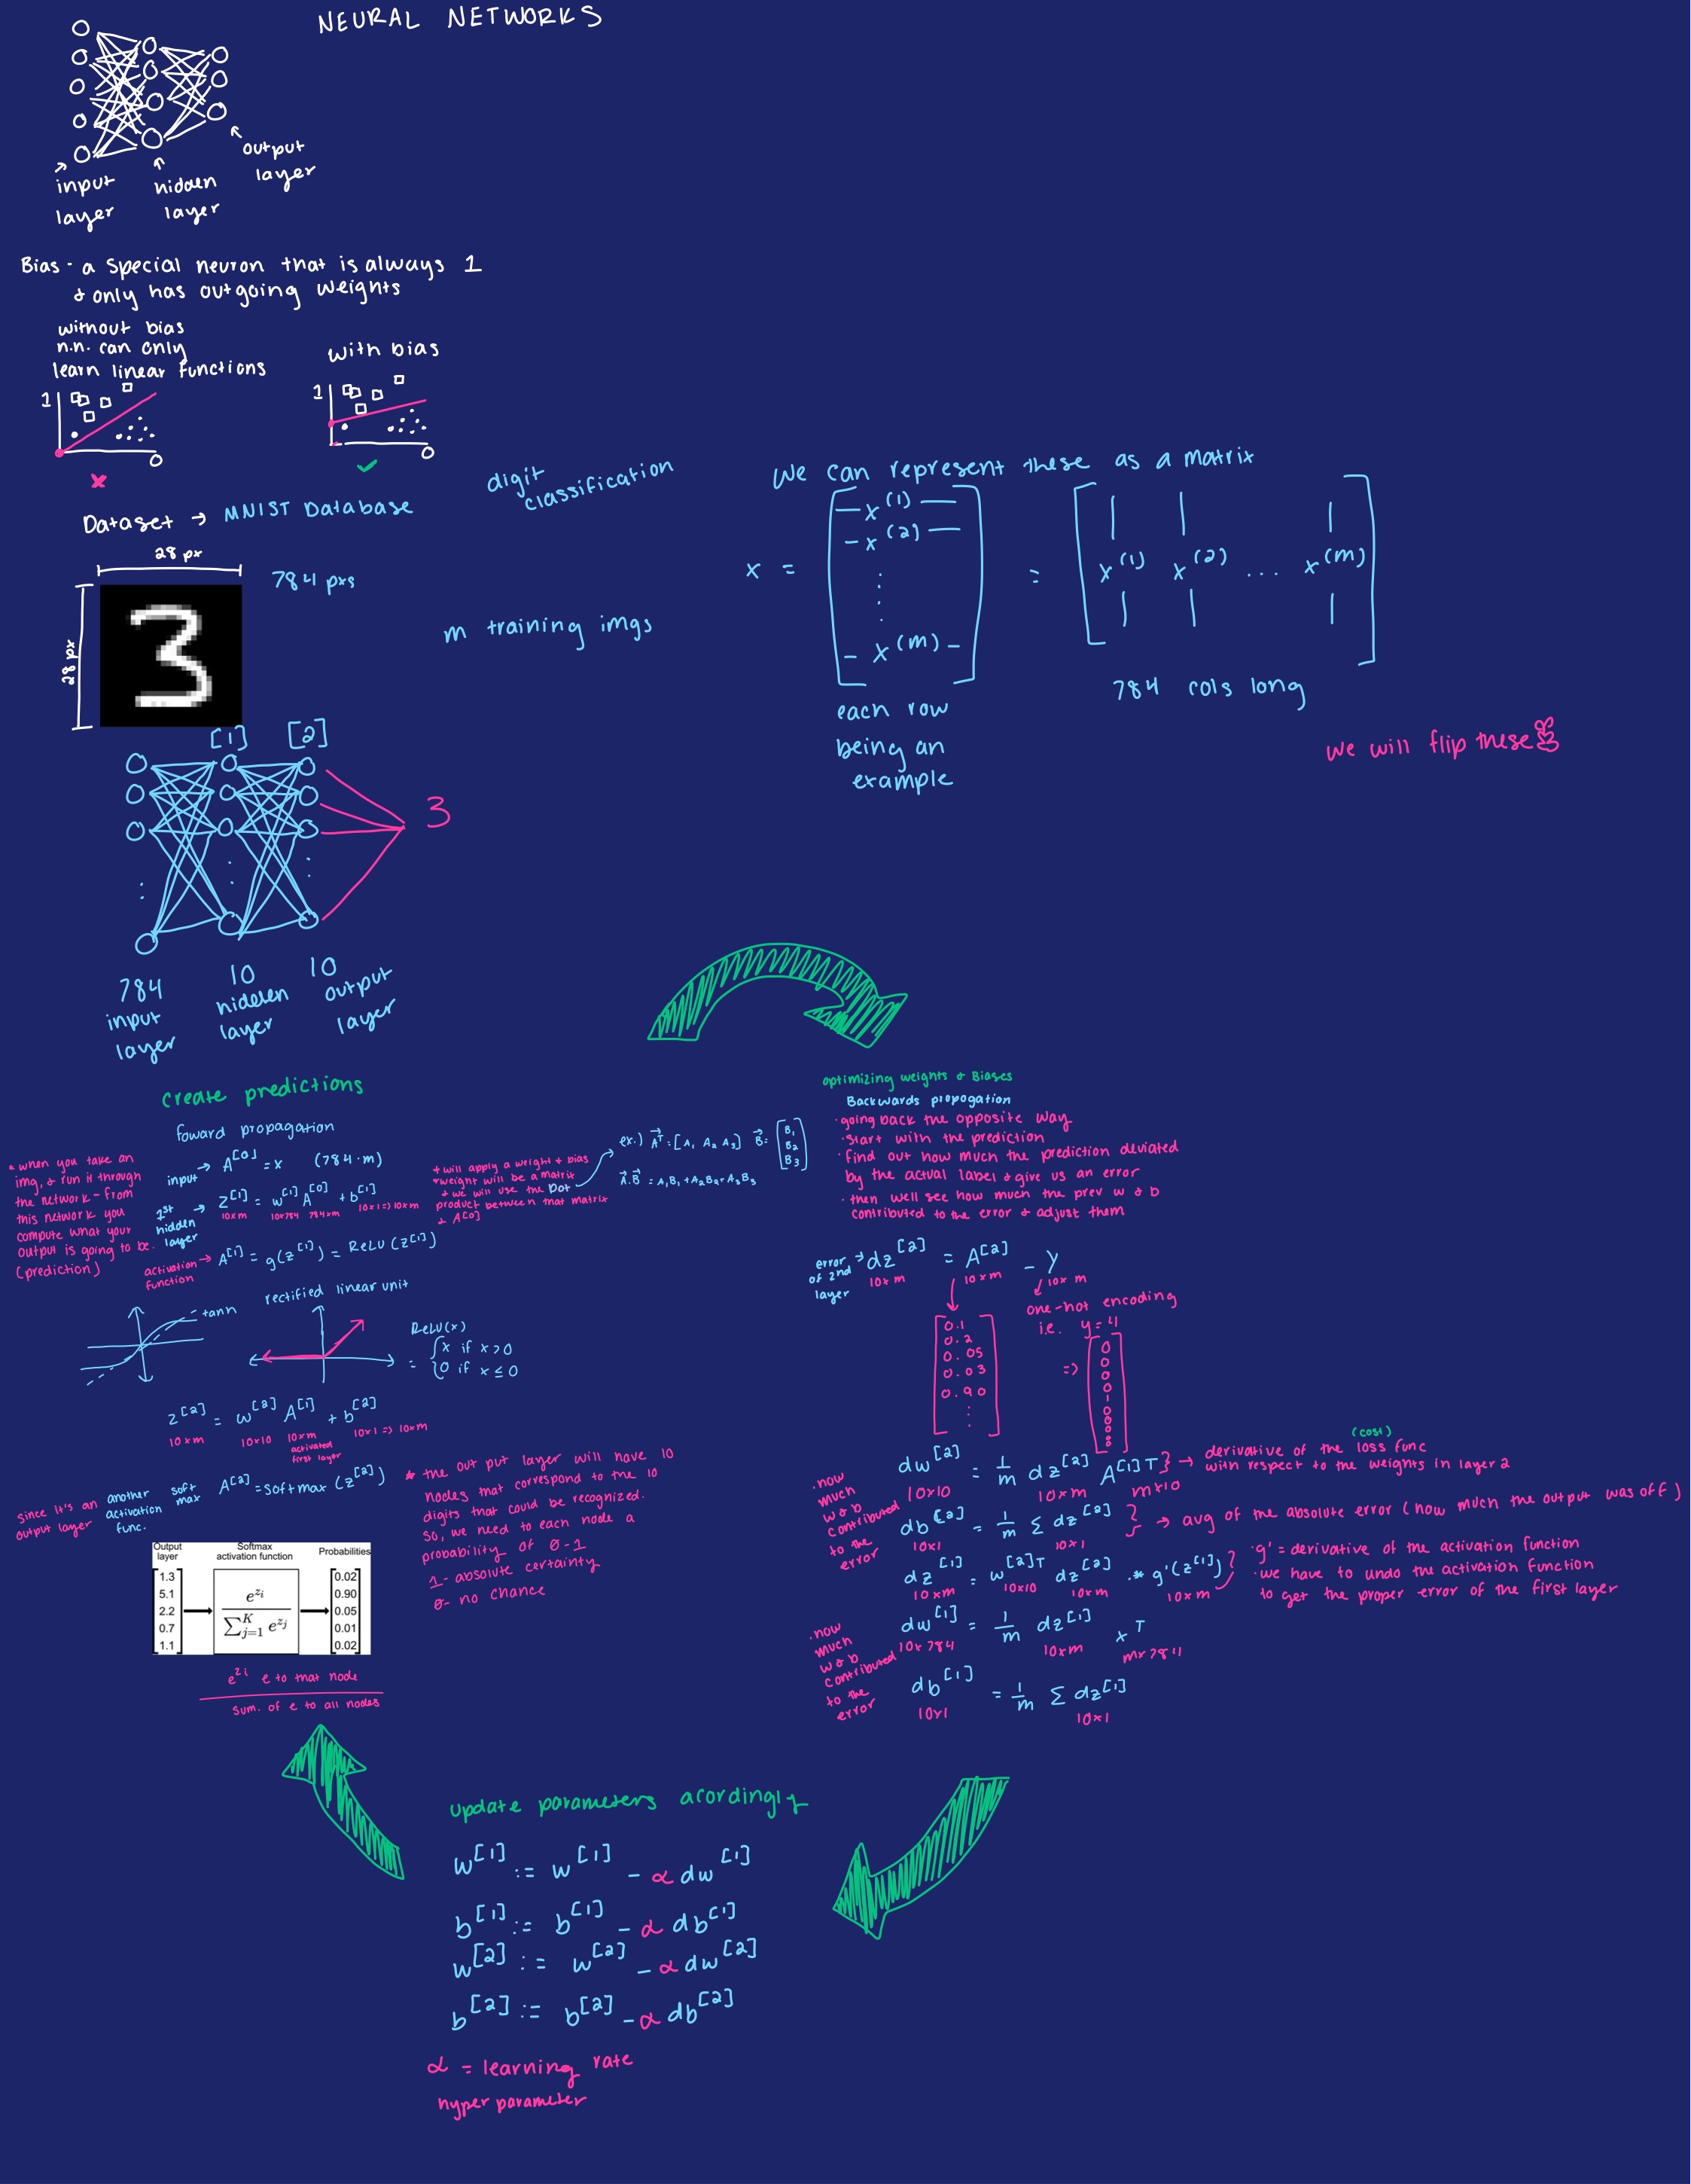 NEURAL NETWORKS
input layer
hidden layer
output layer
Bias - a special neuron that is always 1
& only has outgoing weights
without bias
n.n. can only
learn linear functions
1
0
with bias
1
0
Dataset → MNIST Database
digit
classification
28 px
28 px
784 pxs
m training imgs
We can represent these as a matrix
x = [ — x^(1) — , — x^(2) — , ⋮ , — x^(m) — ] = [ x^(1) x^(2) ... x^(m) ]
each row
being an
example
784 cols long
we will flip these
[1] [2]
3
784
input
layer
10
hidden
layer
10
output
layer
create predictions
foward propagation
* when you take an
img, & run it through
the network - from
this network you
compute what your
output is going to be.
(prediction)
input → A^[0] = x (784 · m)
1st
hidden
layer → Z^[1] = w^[1] A^[0] + b^[1]
10×m 10×784 784×m 10×1 => 10×m
activation
function → A^[1] = g(z^[1]) = ReLU (z^[1])
+ will apply a weight & bias
* weight will be a matrix
& we will use the Dot
product between that matrix
& A[0]
ex.) A^T = [A₁ A₂ A₃] B = [B₁ B₂ B₃]
A·B = A₁B₁ + A₂B₂ + A₃B₃
tanh
rectified linear unit
ReLU(x)
= { x if x > 0
0 if x ≤ 0
z^[2] = w^[2] A^[1] + b^[2]
10×m 10×10 10×m 10×1 => 10×m
activated
first layer
since it's an
output layer
another
activation
func.
soft
max
A^[2] = softmax (z^[2])
* the out put layer will have 10
nodes that correspond to the 10
digits that could be recognized.
so, we need to each node a
probability of 0-1
1- absolute certainty
0- no chance
Output
layer
Softmax
activation function
Probabilities
1.3
5.1
2.2
0.7
1.1
e^{z_i} / ∑_{j=1}^{K} e^{z_j}
0.02
0.90
0.05
0.01
0.02
e^{zi} e to that node
sum. of e to all nodes
optimizing weights & Biases
Backwards propogation
· going back the opposite way
· start with the prediction
· find out how much the prediction deviated
by the actual label & give us an error
· then well see how much the prev w & b
contributed to the error & adjust them
error
of 2nd
layer → dz^[2] = A^[2] - Y
10×m 10×m 10×m
one-hot encoding
i.e. y = 4
0.1
0.2
0.05
0.03
0.90
⋮
=>
0
0
0
0
1
0
0
0
0
0
· how
much
w & b
contributed
to the
error
dw^[2] = 1/m dz^[2] A^[1]T } → derivative of the loss func
(cost)
with respect to the weights in layer 2
10×10 10×m m×10
db^[2] = 1/m Σ dz^[2] } → avg of the absolute error (how much the output was off)
10×1 10×1
dz^[1] = w^[2]T dz^[2] .* g'(z^[1])
10×m 10×10 10×m 10×m
· g' = derivative of the activation function
· we have to undo the activation function
to get the proper error of the first layer
· how
much
w & b
contributed
to the
error
dw^[1] = 1/m dz^[1] x^T
10×784 10×m m×784
db^[1] = 1/m Σ dz^[1]
10×1 10×1
update parameters acordingly
w^[1] := w^[1] - α dw^[1]
b^[1] := b^[1] - α db^[1]
w^[2] := w^[2] - α dw^[2]
b^[2] := b^[2] - α db^[2]
α = learning rate
hyper parameter